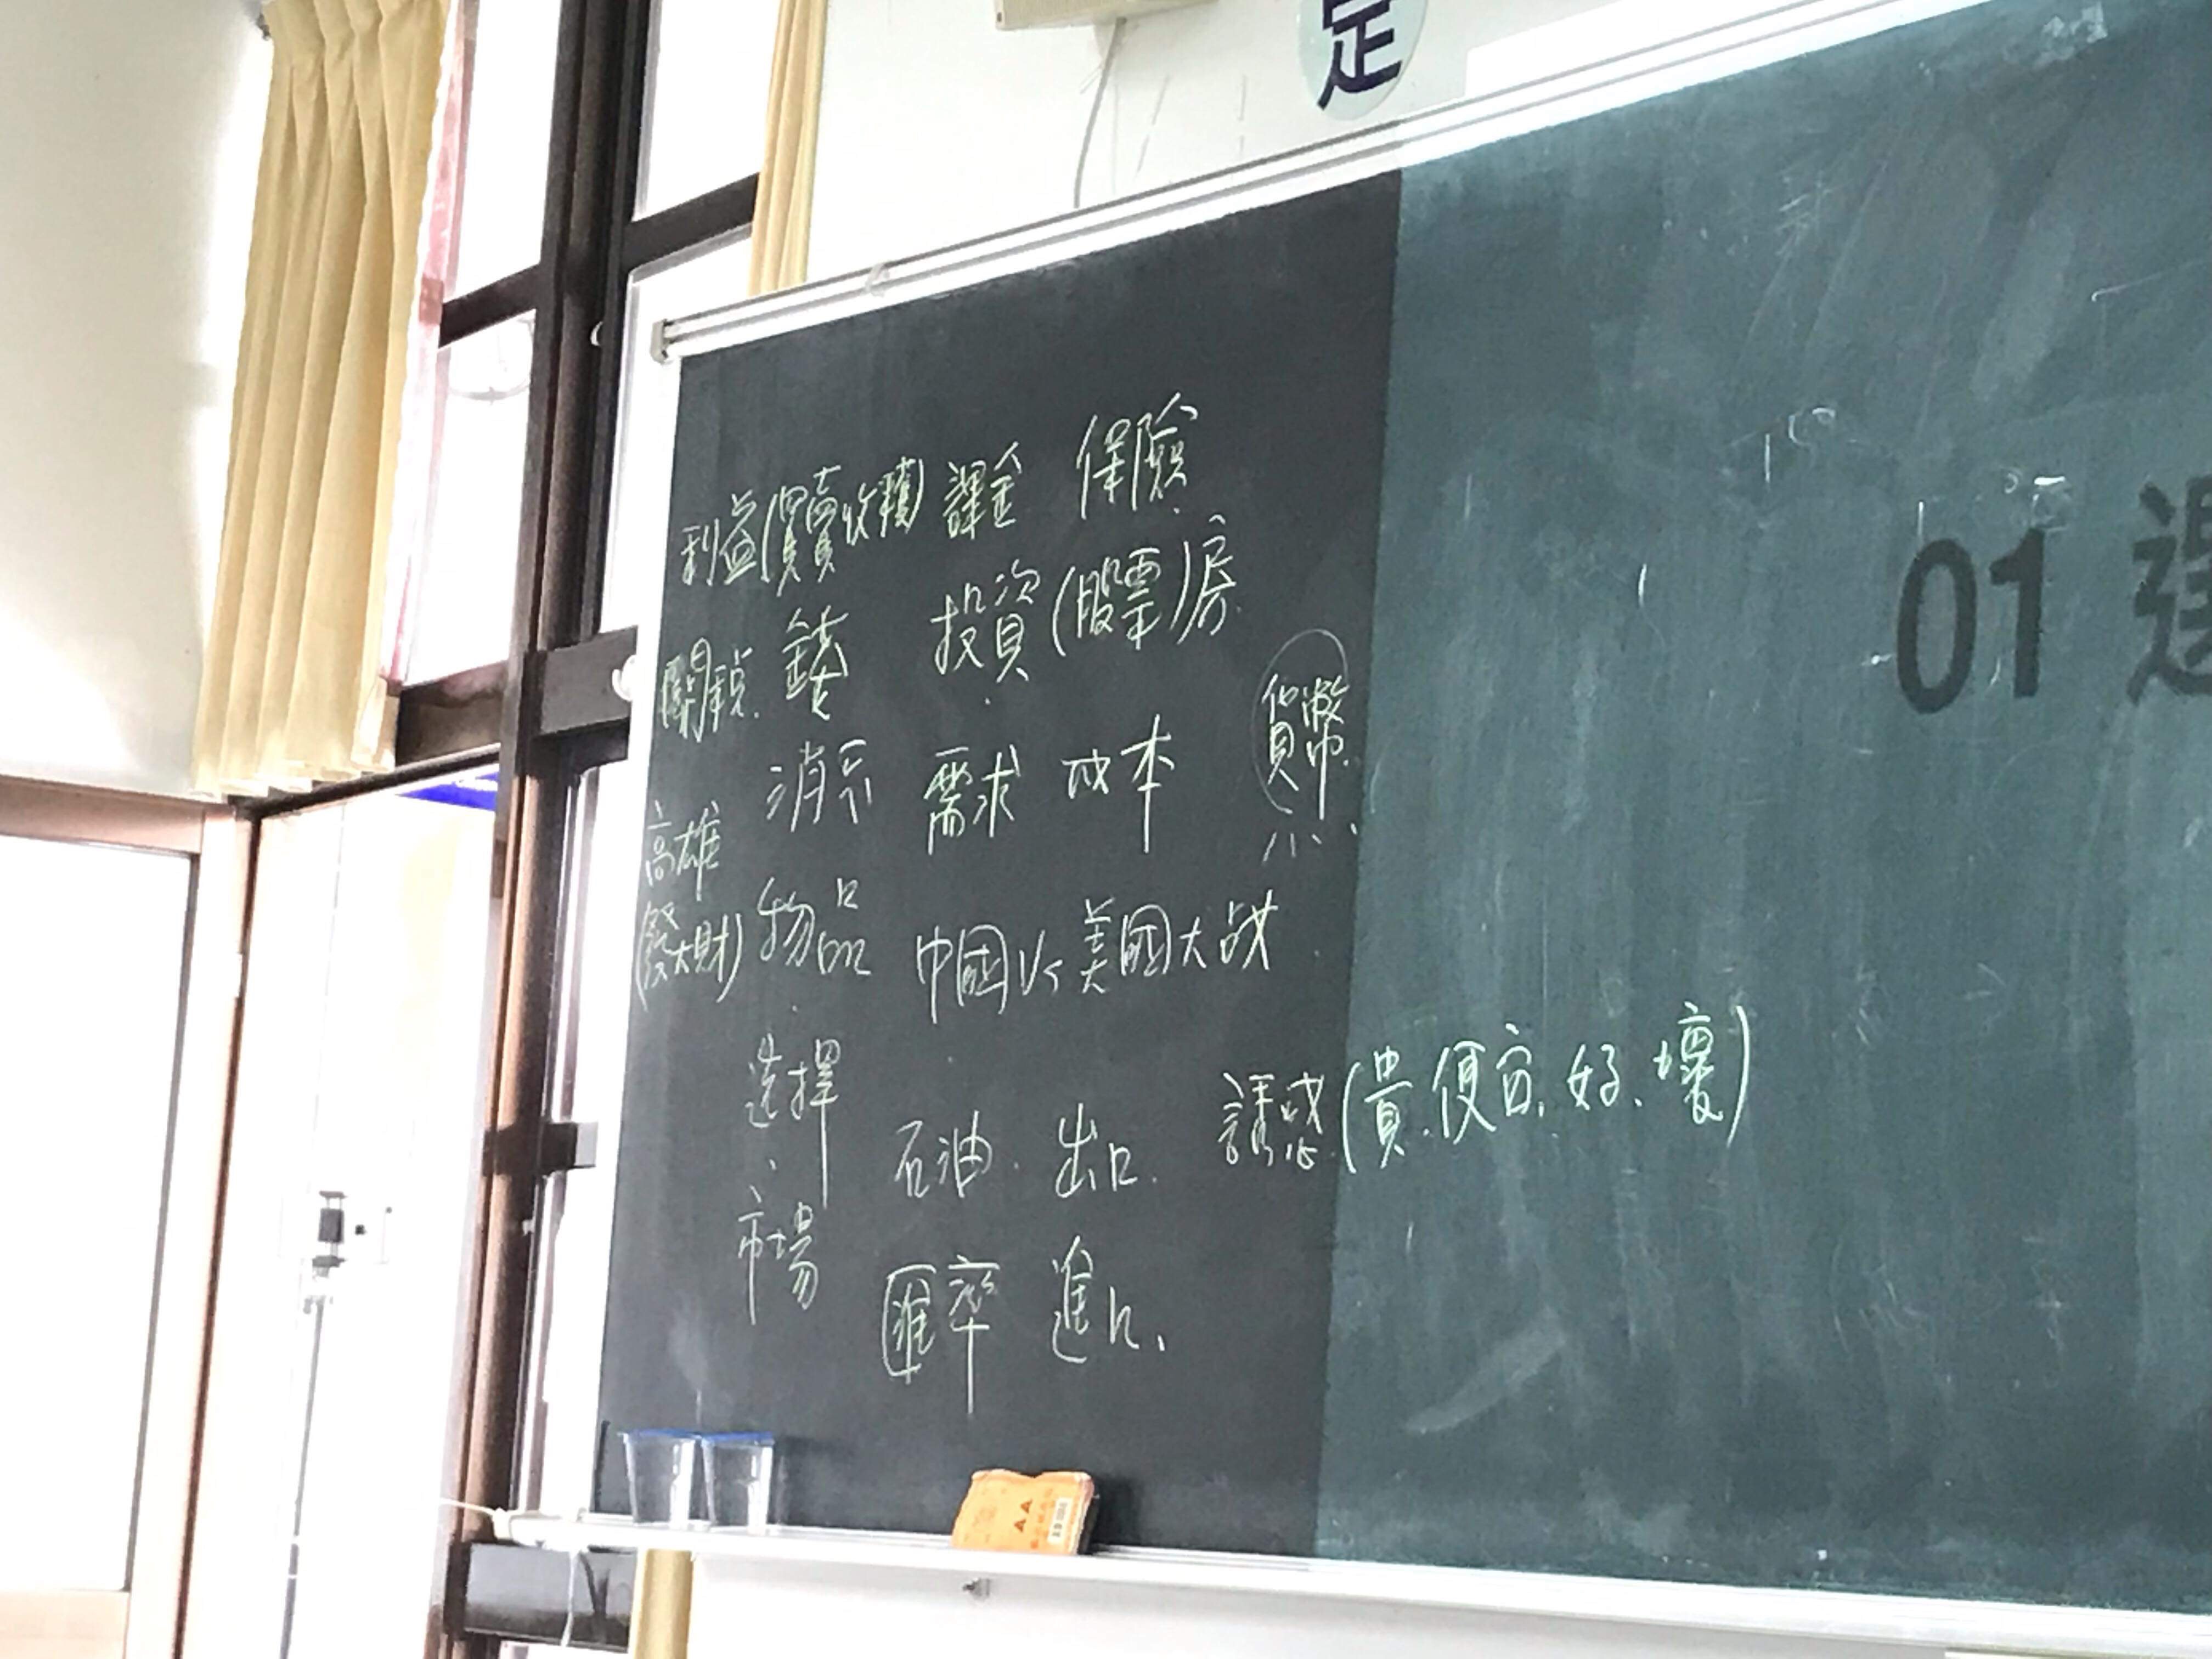 定
01 選
利益(買賣收穫) 課金 保險
關稅 錢 投資(股票)房
消 需求 成本 貨幣
高雄
(發大財) 物品 中國vs美國大战
選擇
石油 出口 誘惑(貴、便宜、好、壞)
市場
匯率 進口